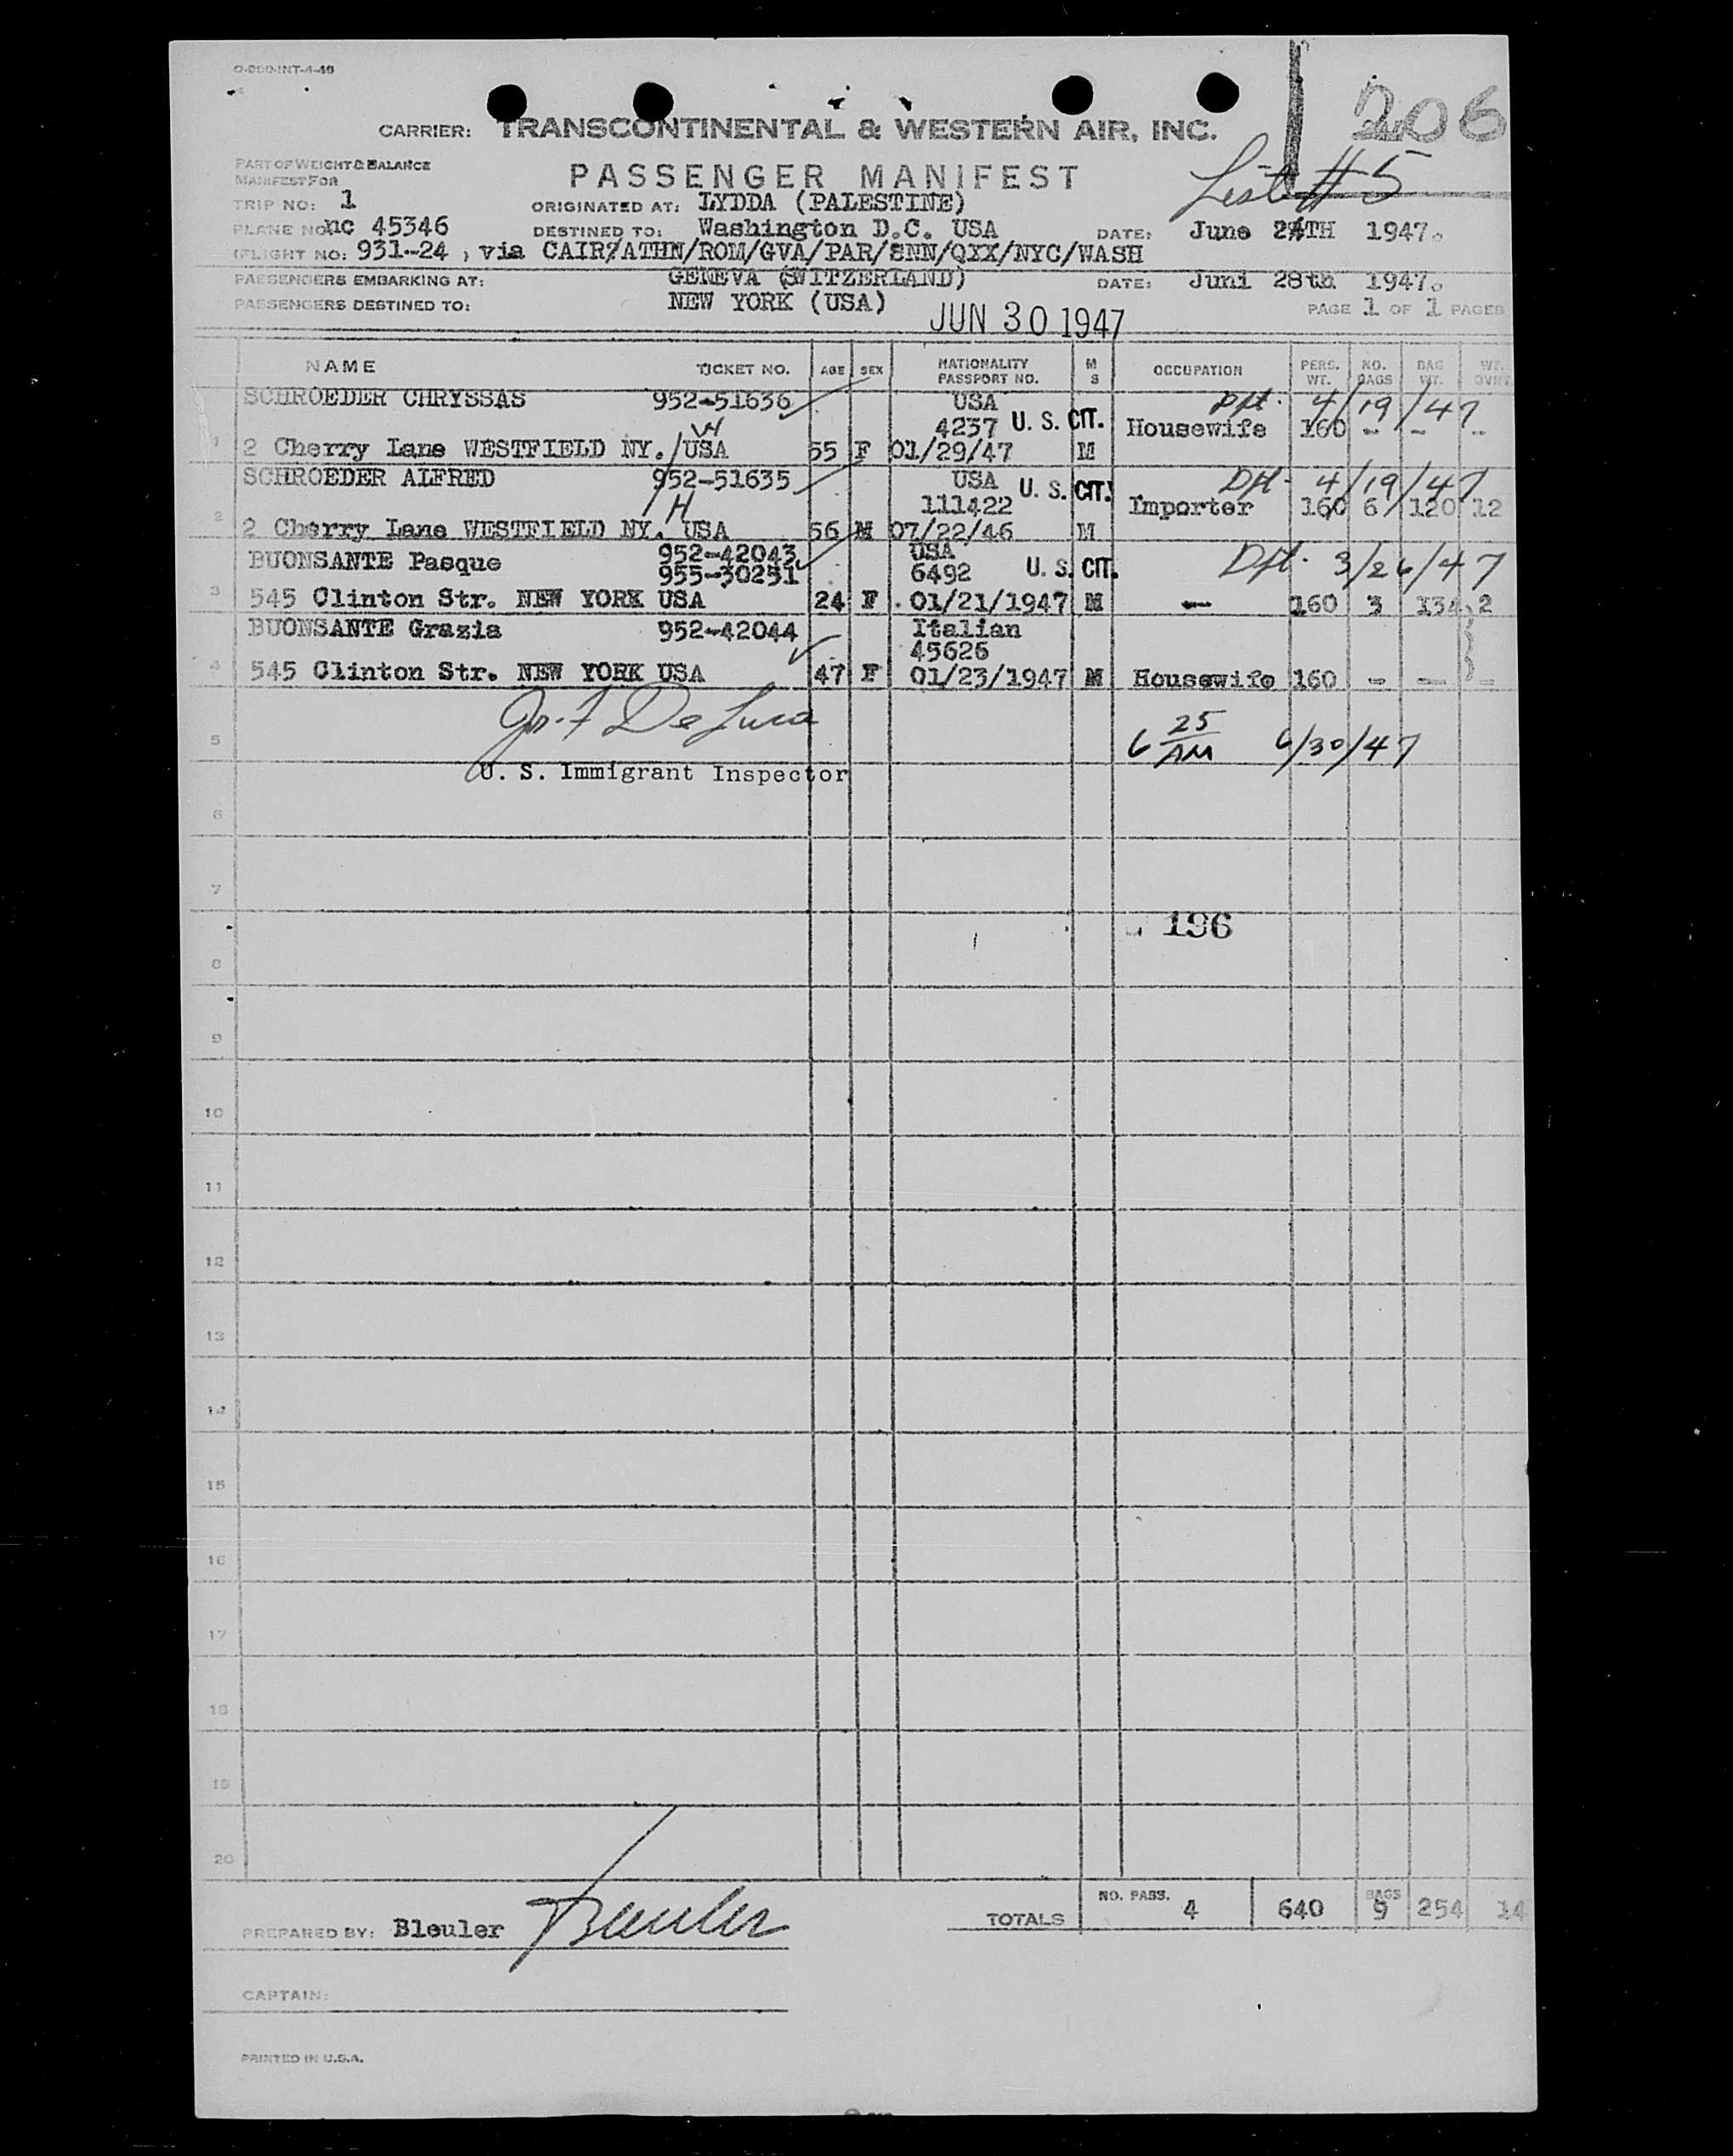 O-900-INT-4-46
206
CARRIER: TRANSCONTINENTAL & WESTERN AIR, INC.
PART OF WEIGHT & BALANCE
MANIFEST FOR
PASSENGER MANIFEST
List #5
TRIP NO: 1 ORIGINATED AT: LYDDA (PALESTINE)
PLANE NO: nc 45346 DESTINED TO: Washington D.C. USA DATE: June 24TH 1947.
(FLIGHT NO: 931--24 , via CAIR/ATHN/ROM/GVA/PAR/SNN/QXX/NYC/WASH
PASSENGERS EMBARKING AT: GENEVA (SWITZERLAND) DATE: Juni 28th 1947.
PASSENGERS DESTINED TO: NEW YORK (USA) PAGE 1 OF 1 PAGES
JUN 30 1947
NAME TICKET NO. AGE SEX NATIONALITY PASSPORT NO. M S OCCUPATION PERS. WT. NO. BAGS BAG WT. WT. OVHT.
SCHROEDER CHRYSSAS 952-51636 USA Dpt. 4/19/47
W 4237 U. S. CIT. Housewife 160 - - -
1 2 Cherry Lane WESTFIELD NY./USA 55 F 01/29/47 M
SCHROEDER ALFRED 952-51635 USA U. S. CIT. Dpt. 4/19/47
H 111422 Importer 160 6 120 12
2 2 Cherry Lane WESTFIELD NY. USA 56 M 07/22/46 M
BUONSANTE Pasque 952-42043 USA Dpt. 3/26/47
955-30251 6492 U. S. CIT.
3 545 Clinton Str. NEW YORK USA 24 F 01/21/1947 M -- 160 3 134 2
BUONSANTE Grazia 952-42044 Italian
45626
4 545 Clinton Str. NEW YORK USA 47 F 01/23/1947 M Housewife 160 - - -
Jos. F De Luca
5 6 25 AM 6/30/47
U. S. Immigrant Inspector
6
7
196
8
9
10
11
12
13
14
15
16
17
18
19
20
TOTALS NO. PASS. 4 640 BAGS 9 254 14
PREPARED BY: Bleuler Bleuler
CAPTAIN:
PRINTED IN U.S.A.